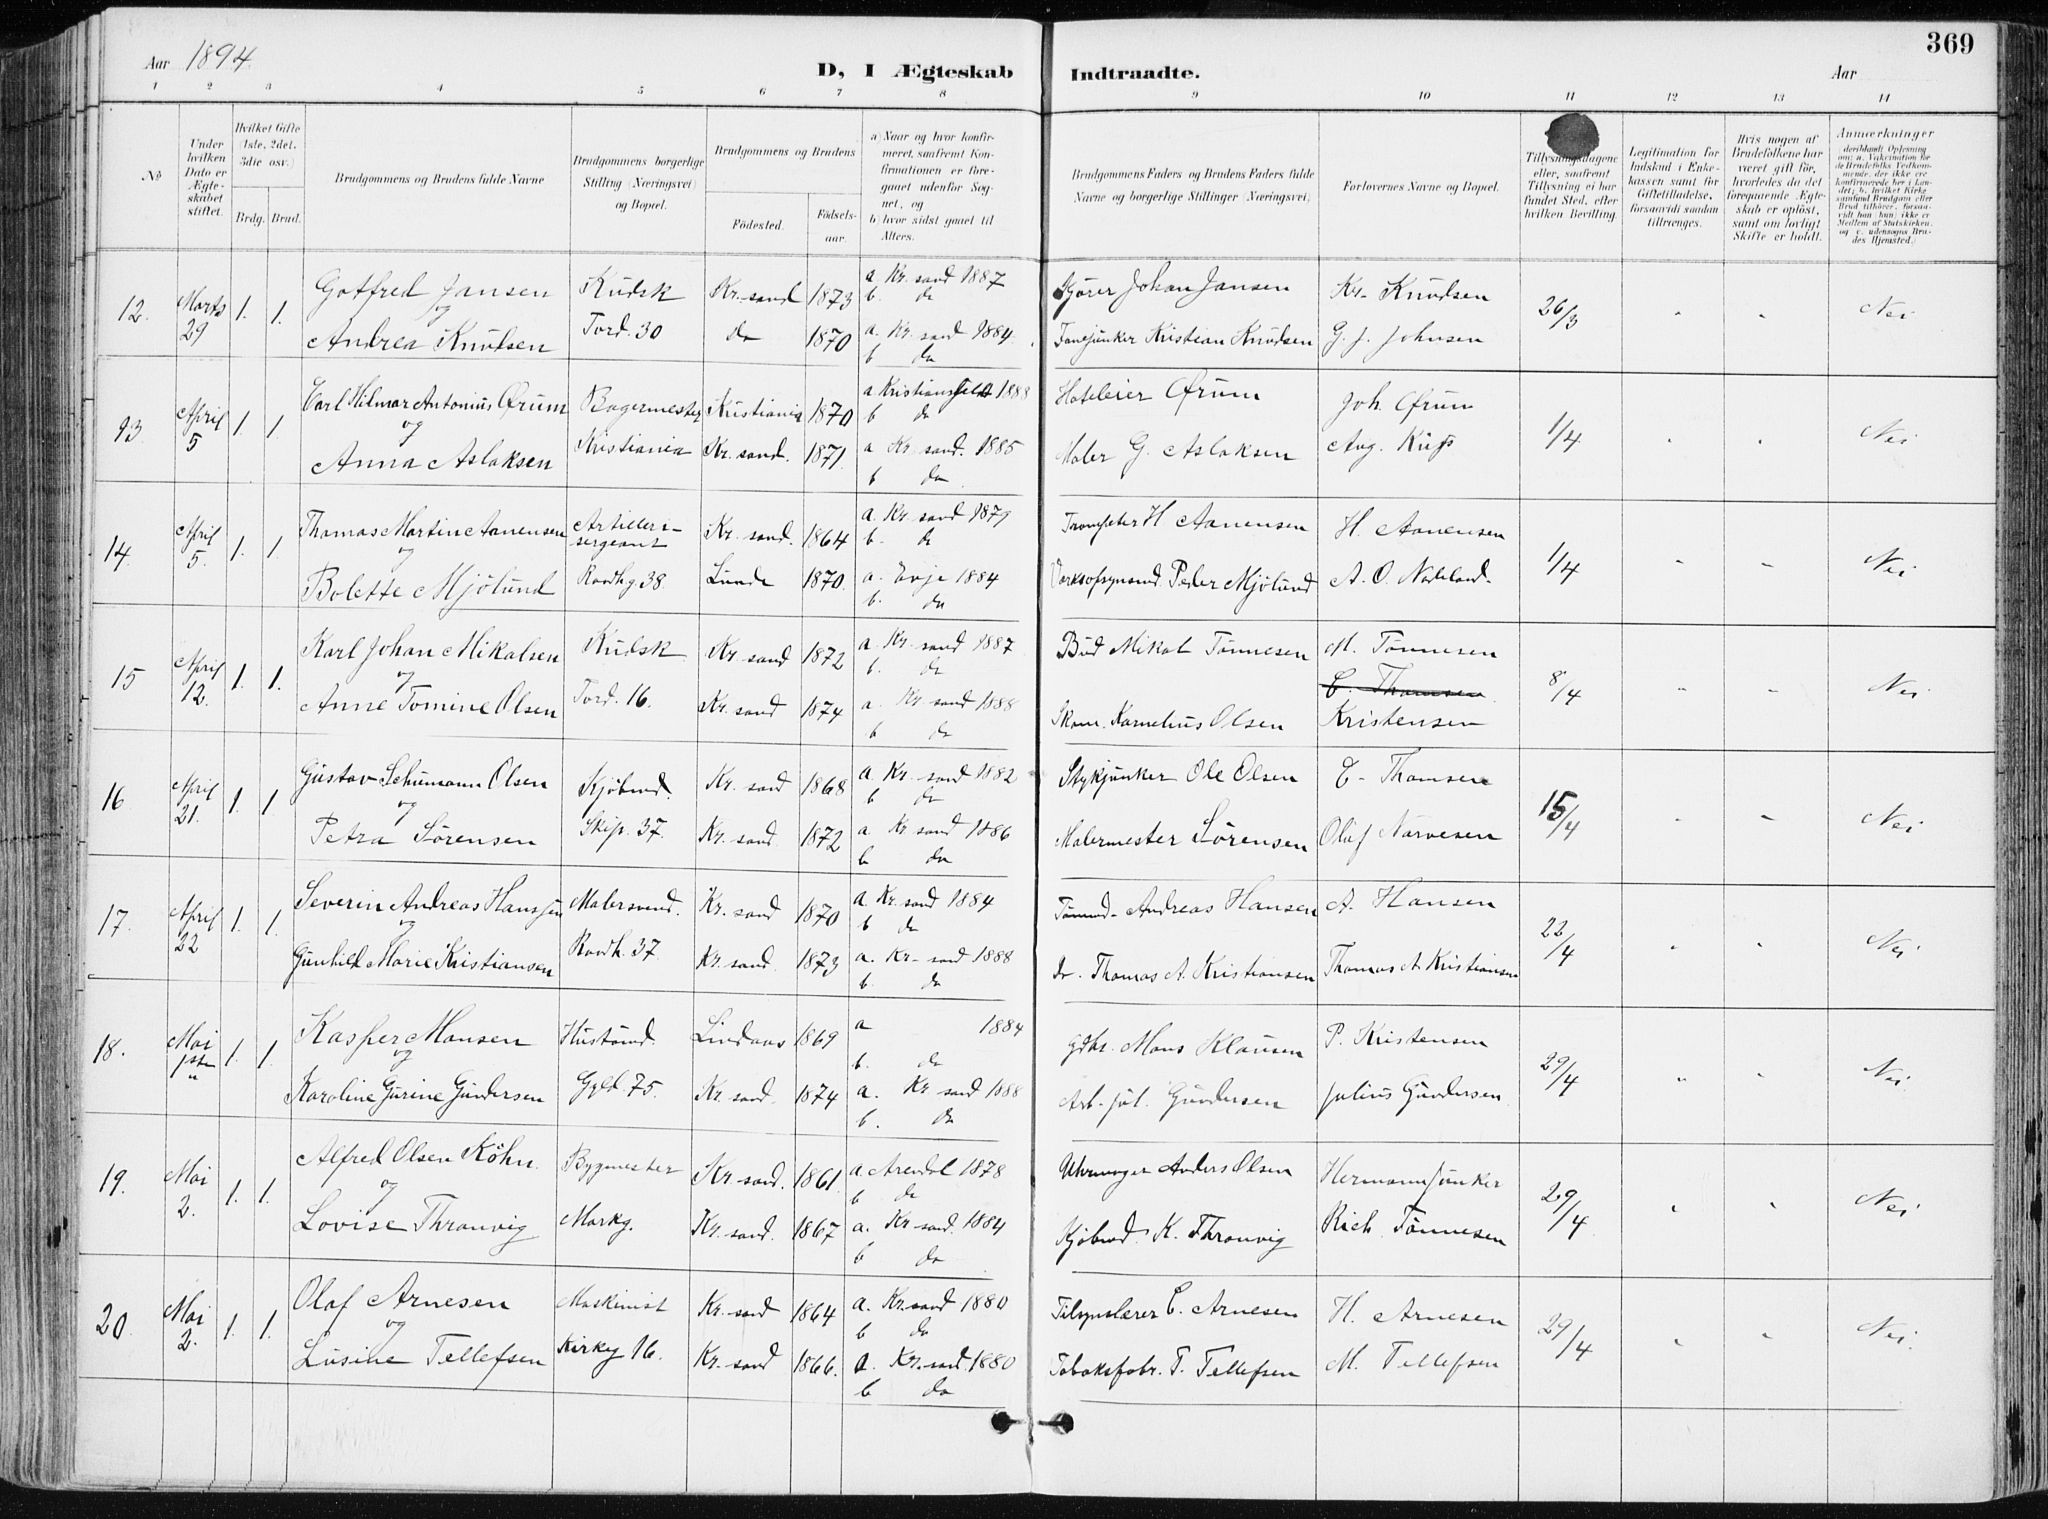 369
Aar 1894. D, I Ægteskab Indtraadte. Aar
1 2 3 4 5 6 7 8 9 10 11 12 13 14
No
Under hvilken Dato er Ægteskabet stiftet.
Hvilket Gifte (1ste, 2det, 3die osv.)
Brdg. Brud.
Brudgommens og Brudens fulde Navne
Brudgommens borgerlige Stilling (Næringsvei) og Bopæl.
Brudgommens og Brudens
Födested. Födsels-aar.
a) Naar og hvor konfirmeret, saafremt Konfirmationen er foregaaet udenfor Sognet, og
b) hvor sidst gaaet til Alters.
Brudgommens Faders og Brudens Faders fulde Navne og borgerlige Stillinger (Næringsvei)
Forlovernes Navne og Bopæl.
Tillysningsdagene eller, saafremt Tillysning ei har fundet Sted, efter hvilken Bevilling.
Legitimation for Indskud i Enkekassen samt for Giftetilladelse, forsaavidt saadan tiltrænges.
Hvis nogen af Brudefolkene har været gift för, hvorledes da det foregaaende Ægteskab er oplöst, samt om lovligt Skifte er holdt.
Anmærkninger
12. Marts 29 1. 1. Gotfred Jansen Kudsk Kr. sand 1873 a Kr. sand 1887 Kjører Johan Jansen Kr. Knudsen 26/3 " " Nei
og b. do
Andrea Knudsen Tord. 30 do 1870 a. Kr. sand 1884. Fanejunker Kristian Knudsen G. J. Johnsen
b do
13. April 5 1. 1. Carl Hilmar Antonius Ørum Bagermester Kristiania 1870 a Kristiansfeld 1888 Hoteleier Ørum Joh. Ørum 1/4 " " Nei
og b do
Anna Aslaksen Kristiania Kr. sand. 1871. a Kr. sand. 1885 Maler G. Aslaksen Aug.
b do
14. April 5. 1. 1. Thomas Martin Aanensen Artilleri-sergeant Kr. sand. 1864 a. Kr. sand 1879 Trompeter H Aanensen H. Aanensen 1/4 " " Nei
og b. do
Bolette Mjölund Raadhg. 38 Lunde 1870. a. Evje 1884 Peder Mjölund A. O. Nodeland.
b. do
15 April 12. 1. 1. Karl Johan Mikalsen Kudsk Kr. sand 1872 a. Kr. sand 1887 Bud Mikal Tönnesen M. Tönnesen 8/4 " " Nei
og b. do C. Thomsen
Anne Tomine Olsen Tord. 16. Kr. sand 1874 a. Kr. sand 1888 Skom. Kornelius Olsen Kristensen
b do
16. April 21. 1. 1 Gustav Schumann Olsen Kjöbmd. Kr. sand 1868 a. Kr. sand 1882 Stykjunker Ole Olsen C. Thomsen 15/4 " " Nei
og b do
Petra Sörensen Skip. 37. Kr. sand. 1872 a Kr sand 1886 Malermester Sörensen Olaf Narvesen
b do
17. April 22 1. 1. Severin Andreas Hanssen Malersvend. Kr. sand 1870 a Kr. sand 1884 Tömmd. Andreas Hansen A. Hansen 22/4 " " Nei
og b do
Gunhild Marie Kristiansen Raadh. 37. Kr. sand. 1873 a. Kr. sand 1888 do. Thomas A. Kristiansen Thomas A. Kristiansen
b. do
18. Mai 1ste 1. 1. Kasper Monsen Hustömd. Lindaas 1869 a 1884 gdbr. Mons Klausen P. Kristensen 29/4 " " Nei.
og b. do
Karoline Gurine Gundersen Gyld. 75. Kr. sand. 1874 a. Kr. sand 1888 Arb. Jul. Gundersen Julius Gundersen
b. do
19. Mai 2. 1. 1. Alfred Olsen Köhn. Bygmester Kr. sand. 1861. a. Arendal 1878 Uhrmager Anders Olsen Hermann Junker 29/4 " " Nei
og b do
Lovise Thronvig Markg. Kr. sand. 1867 a. Kr. sand. 1884 Kjöbmd. K. Thronvig Rich. Tönnesen
b do
20. Mai 2. 1. 1. Olaf Arnesen Maskinist Kr. sand 1864 a. Kr. sand 1880 Tilsynslærer C. Arnesen H. Arnesen 29/4 " " Nei.
og b do
Lusine Tellefsen Kirkeg 16. Kr. sand 1866. a. Kr. sand. 1880 Tobaksfabr. T. Tellefsen M. Tellefsen
b do